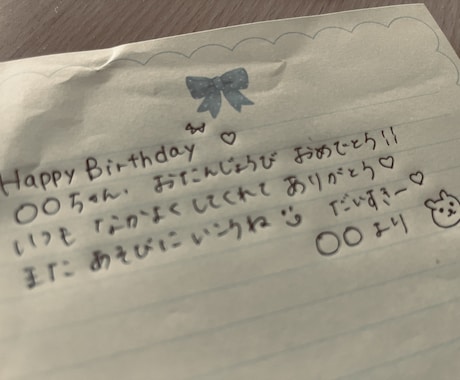 Happy Birthday ♡
○○ちゃん、おたんじょうび おめでとう!!
いつも なかよくしてくれて ありがとう♡
また あそびに いこうね☺ だいすきー♡
○○より